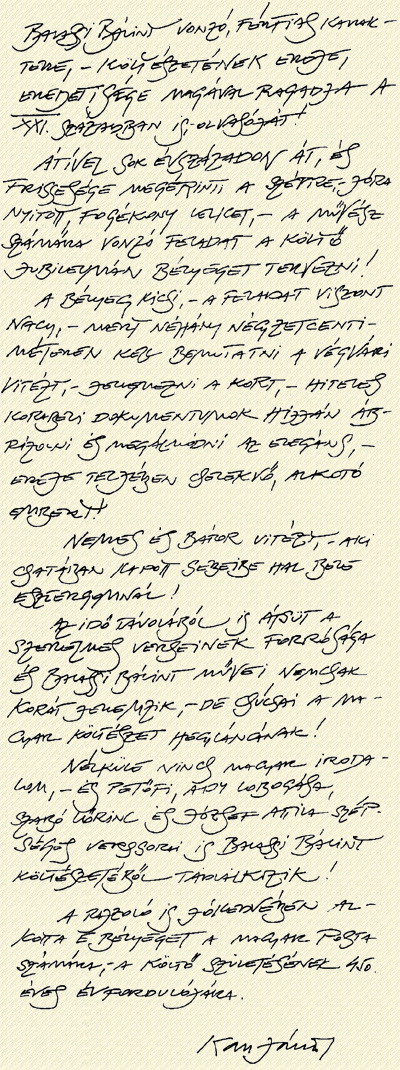 BALASSI BÁLINT VONZÓ, FÉRFIAS KARAK-
TERE, - KÖLTÉSZETÉNEK EREJE,
EREDETISÉGE MAGÁVAL RAGADJA A
XXI. SZÁZADBAN IS OLVASÓJÁT!
ÁTÍVEL SOK ÉVSZÁZADON ÁT, ÉS
FRISSESÉGE MEGÉRINTI A SZÉPRE, - JÓRA
NYITOTT, FOGÉKONY LELKET, - A MŰVÉSZ
SZÁMÁRA VONZÓ FELADAT A KÖLTŐ
JUBILEUMÁN BÉLYEGET TERVEZNI!
A BÉLYEG KICSI, - A FELADAT VISZONT
NAGY, - MERT NÉHÁNY NÉGYZETCENTI-
MÉTEREN KELL BEMUTATNI A VÉGVÁRI
VITÉZT, - JELLEMEZNI A KORT, - HITELES
KORABELI DOKUMENTUMOK HÍJJÁN ÁB-
RÁZOLNI ÉS MEGÁLMODNI AZ ELEGÁNS, -
EREJE TELJÉBEN CSELEKVŐ, ALKOTÓ
EMBERT!
NEMES ÉS BÁTOR VITÉZT, - AKI
CSATÁBAN KAPOTT SEBEIBE HAL BELE
ESZTERGOMNÁL!
AZ IDŐ TÁVOLÁBÓL IS ÁTSÜT A
SZERELMES VERSEINEK FORRÓSÁGA
ÉS BALASSI BÁLINT MŰVEI NEMCSAK
KORÁT JELLEMZIK, - DE CSÚCSAI A MA-
GYAR KÖLTÉSZET HEGYLÁNCÁNAK!
NÉLKÜLE NINCS MAGYAR IRODA-
LOM, - ÉS PETŐFI, ADY LOBOGÁSA,
SZABÓ LŐRINC ÉS JÓZSEF ATTILA SZÉP-
SÉGES VERSSORAI IS BALASSI BÁLINT
KÖLTÉSZETÉBŐL TÁPLÁLKOZIK!
A RAJZOLÓ IS JÓKEDVÉBEN AL-
KOTTA E BÉLYEGET A MAGYAR POSTA
SZÁMÁRA, - A KÖLTŐ SZÜLETÉSÉNEK 450.
ÉVES ÉVFORDULÓJÁRA.
Kass János